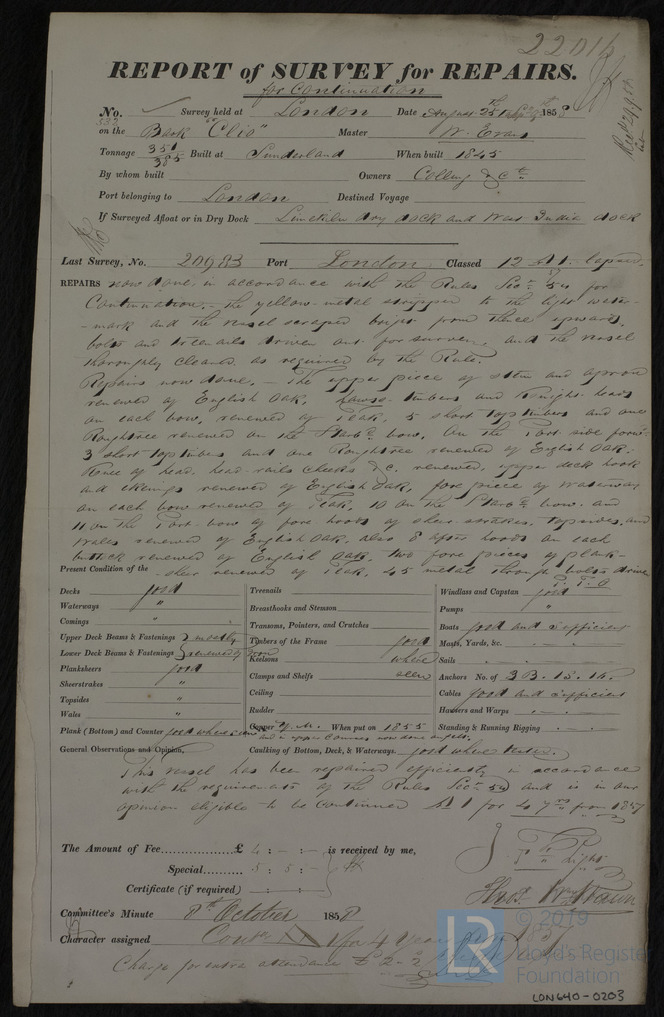 22016
REPORT of SURVEY for REPAIRS.
for Continuation
No. 532 Survey held at London Date August 25th 1858
on the Bark "Clio" Master W. Evans
Tonnage 351 385 Built at Sunderland When built 1845
By whom built Owners Colling & Co
Port belonging to London Destined Voyage
If Surveyed Afloat or in Dry Dock Limekiln dry dock and West India dock
Last Survey, No. 20983 Port London Classed 12 A1. lapsed.
REPAIRS now done, in accordance with the Rules Sect 54 for
Continuation. - the yellow metal stripped to the light water-
-mark and the vessel scraped bright from thence upwards,
bolts and treenails driven out for survey, and the vessel
thoroughly cleaned as required by the Rules.
Repairs now done. - The upper piece of stem and apron
renewed of English Oak. Hawse timbers and Knight heads
on each bow, renewed of Teak, 5 short top timbers and one
Roughtree renewed on the Starbd bow. On the Port side forwd
3 short top timbers and one Roughtree renewed of English Oak.
Knee of head, head-rails cheeks &c. renewed, upper deck hook
and ekeings renewed of English Oak, fore piece of waterway
on each bow renewed of Teak, 10 on the Starbd bow and
11 on the Port bow of fore hoods of sheer-strakes, topsides, and
Wales renewed of English Oak, also 8 after hoods on each
buttock renewed of English Oak, two fore pieces of plank-
-sheer renewed of Teak, 45 metal through bolts driven
P. T. O
Present Condition of the
Decks good
Waterways "
Comings "
Upper Deck Beams & Fastenings } mostly
Lower Deck Beams & Fastenings } renewed of iron
Planksheers good
Sheerstrakes "
Topsides "
Wales "
Plank (Bottom) and Counter good where seen
Treenails
Breasthooks and Stemson
Transoms, Pointers, and Crutches
Timbers of the Frame good
Keelsons where
Clamps and Shelfs seen
Ceiling
Rudder
Copper Y. M. When put on 1855
and 2 upper courses now done
Caulking of Bottom, Deck, & Waterways. good where tested.
Windlass and Capstan good
Pumps "
Boats good and sufficient
Masts, Yards, &c.
Sails
Anchors No. of 3 B. 1 S. 1 K.
Cables good and sufficient
Hawsers and Warps
Standing & Running Rigging
General Observations and Opinion,
This vessel has been repaired efficiently in accordance
with the requirements of the Rules Sect 54 and is in our
opinion eligible to be Continued A1 for 4 yrs from 1857
The Amount of Fee £ 4 : - : - is received by me,
Special 5 : 5 : -
Certificate (if required) : - :
Committee's Minute 8th October 1858
Character assigned Contd A1 for 4 years from 1857
Charge for extra attendance £ 2-2
© 2019
Lloyd's Register
Foundation
LR
LON640-0203